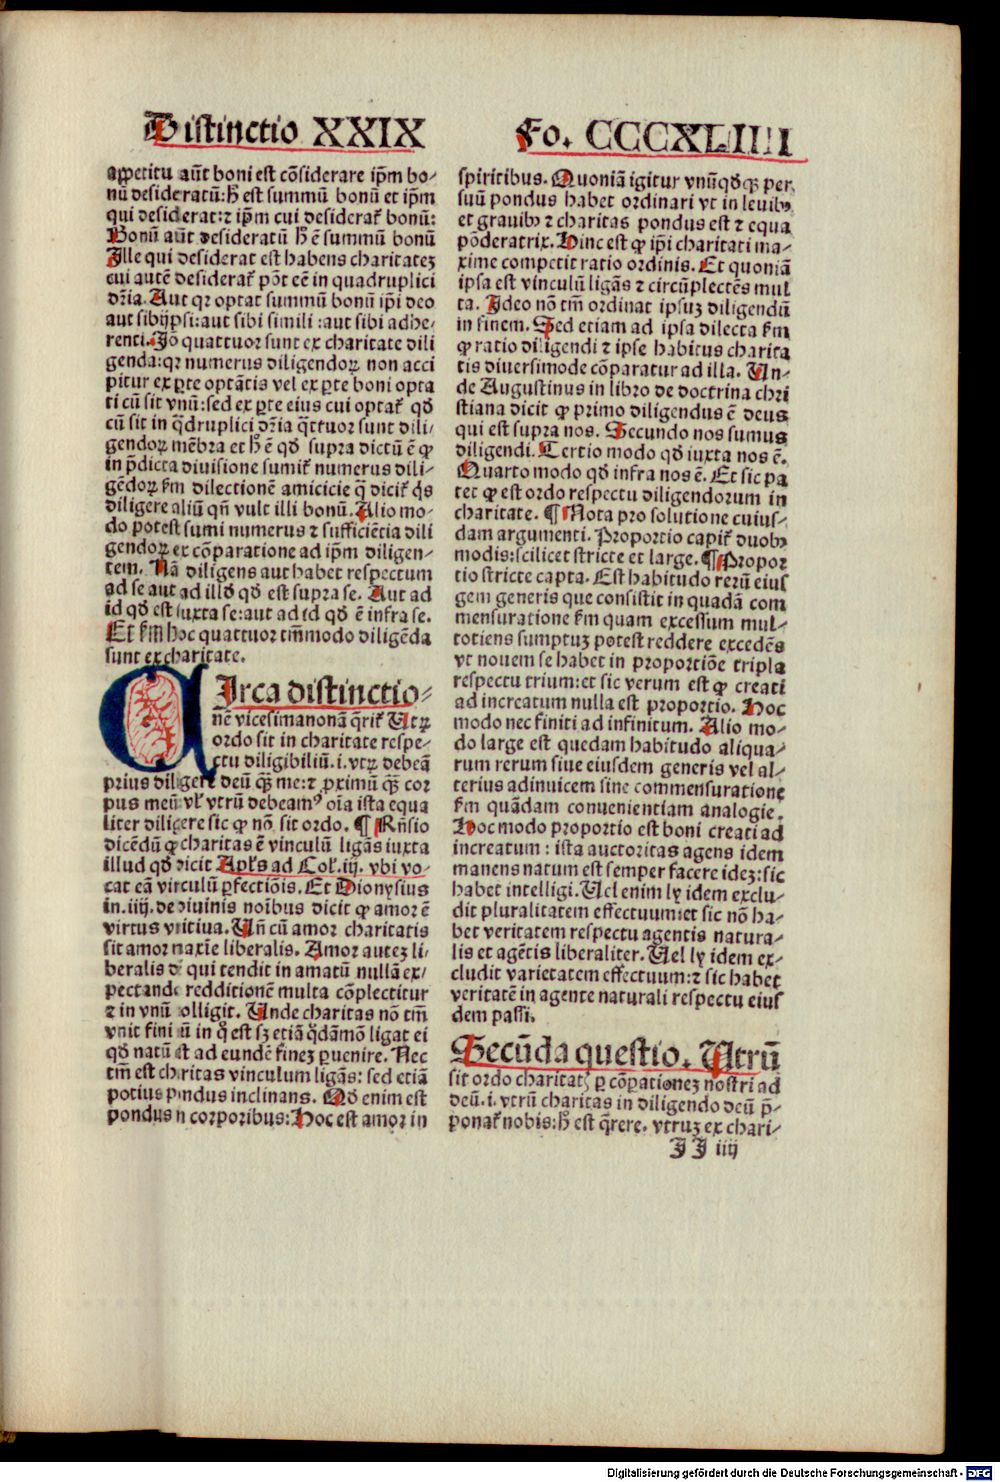 Distinctio XXIX
Fo. CCCXLIIII
appetitu aūt boni est cōsiderare ip̄m bo⸗
nū desideratū: h̄ est summū bonū et ip̄m
qui desiderat: ⁊ ip̄m cui desiderat᷑ bonū:
Bonū aūt desideratū h̄ ē summū bonū
Ille qui desiderat est habens charitateꝫ
cui autē desiderat᷑ pōt eē in quadruplici
dr̄ia. Aut qꝛ optat summū bonū ip̄i deo
aut sibijpsi: aut sibi simili: aut sibi adhe⸗
renti. Iō quattuor sunt ex charitate dili
genda: qꝛ numerus diligendoꝝ non acci
pitur ex ꝑte optātis vel ex ꝑte boni opta
ti cū sit vnū: sed ex ꝑte eius cui optat᷑ qd̄
cū sit in q̄druplici dr̄ia q̄ttuor sunt dili⸗
gendoꝝ mēbra et h̄ ē qd̄ supra dictū ē ꝙ
in p̄dicta divisione sumit᷑ numerus dili⸗
gēdoꝝ ẜm dilectionē amicicie q̄ dicit᷑ q̄s
diligere aliū qn̄ vult illi bonū. Alio mo⸗
do potest sumi numerus ⁊ sufficiētia dili
gendoꝝ ex cōparatione ad ip̄m diligen⸗
tem. Nā diligens aut habet respectum
ad se aut ad illd̄ qd̄ est supra se. Aut ad
id qd̄ est iuxta se: aut ad id qd̄ ē infra se.
Et ẜm hoc quattuor tm̄modo diligēda
sunt ex charitate.
CIrca distinctio⸗
nē vicesimanonā q̄rit᷑ Utꝝ
ordo sit in charitate respe⸗
ctu diligibiliū. i. vtꝝ debeā
prius diligere deū q̄ꝫ me: ⁊ ꝓximū q̄ꝫ cor
pus meū vl᷑ vtrū debeamꝰ oīa ista equa
liter diligere sic ꝙ nō sit ordo. ¶ Rn̄sio
dicēdū ꝙ charitas ē vinculū ligās iuxta
illud qd̄ dicit Apl᷑s ad Col᷑. iij. vbi vo⸗
cat eā vinculū ꝑfectiōis. Et Dionysius
in. iiij. de diuinis noībus dicit ꝙ amor ē
virtus vnitiua. Un̄ cū amor charitatis
sit amor maxīe liberalis. Amor auteꝫ li⸗
beralis qui tendit in amatū nullā ex⸗
pectando redditionē multa cōplectitur
⁊ in vnū colligit. Unde charitas nō tm̄
vnit fini in q̄ est sꝫ etiā q̄dāmō ligat ei
qd̄ natū est ad eundē fineꝫ ꝑuenire. Nec
tm̄ est charitas vinculum ligās: sed etiā
potius pondus inclinans. Qd̄ enim est
pondus in corporibus: Hoc est amor in
spiritibus. Quoniā igitur vnūqd̄qꝫ per
suū pondus habet ordinari vt in leuibꝰ
et grauibꝰ ⁊ charitas pondus est ⁊ equa
pōderatrix. Hinc est ꝙ ip̄i charitati ma⸗
xime competit ratio ordinis. Et quoniā
ipsa est vinculū ligās ⁊ circūplectēs mul
ta. Ideo nō tm̄ ordinat ipsuꝫ diligendū
in finem. Sed etiam ad ipsa dilecta ẜm
ꝙ ratio diligendi ⁊ ipse habitus charita
tis diversimode cōparatur ad illa. Un⸗
de Augustinus in libro de doctrina chri
stiana dicit ꝙ primo diligendus ē deus
qui est supra nos. Secundo nos sumus
diligendi. Tertio modo qd̄ iuxta nos ē.
Quarto modo qd̄ infra nos ē. Et sic pa
tet ꝙ est ordo respectu diligendorum in
charitate. ¶ Nota pro solutione cuius⸗
dam argumenti. Proportio capit᷑ duobꝰ
modis: scilicet stricte et large. ¶ Propor
tio stricte capta. Est habitudo rerū eius
gem generis que consistit in quadā com
mensuratione ẜm quam excessum mul⸗
totiens sumptuꝫ potest reddere excedēs
vt nouem se habet in proportiōe tripla
respectu trium: et sic verum est ꝙ creati
ad increatum nulla est proportio. Hoc
modo nec finiti ad infinitum. Alio mo⸗
do large est quedam habitudo aliqua⸗
rum rerum siue eiusdem generis vel al⸗
terius adinuicem sine commensuratione
ẜm quādam conuenientiam analogie.
Hoc modo proportio est boni creati ad
increatum: ista auctoritas agens idem
manens natum est semper facere ideꝫ: sic
habet intelligi. Uel enim ly idem exclu⸗
dit pluralitatem effectuum: et sic nō ha⸗
bet veritatem respectu agentis natura⸗
lis et agētis liberaliter. Uel ly idem ex⸗
cludit varietatem effectuum: ⁊ sic habet
veritatē in agente naturali respectu eius
dem passi.
Secūda questio. Utrū
sit ordo charitatꝭ ꝑ cōꝑationeꝫ nostri ad
deū. i. vtrū charitas in diligendo deū p̄⸗
ponat᷑ nobis: h̄ est q̄rere. vtruꝫ ex chari⸗
II iiij
Digitalisierung gefördert durch die Deutsche Forschungsgemeinschaft - DFG